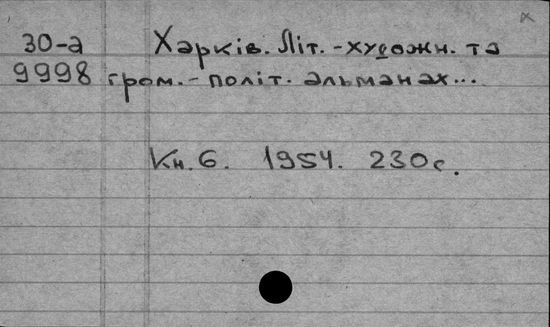 30-а Харків. Літ.-художн. та
9998 гром.-політ. альманах...
Кн. 6. 1954. 230 с.